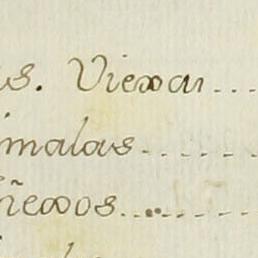 as. Viexa
imalas
ñexos